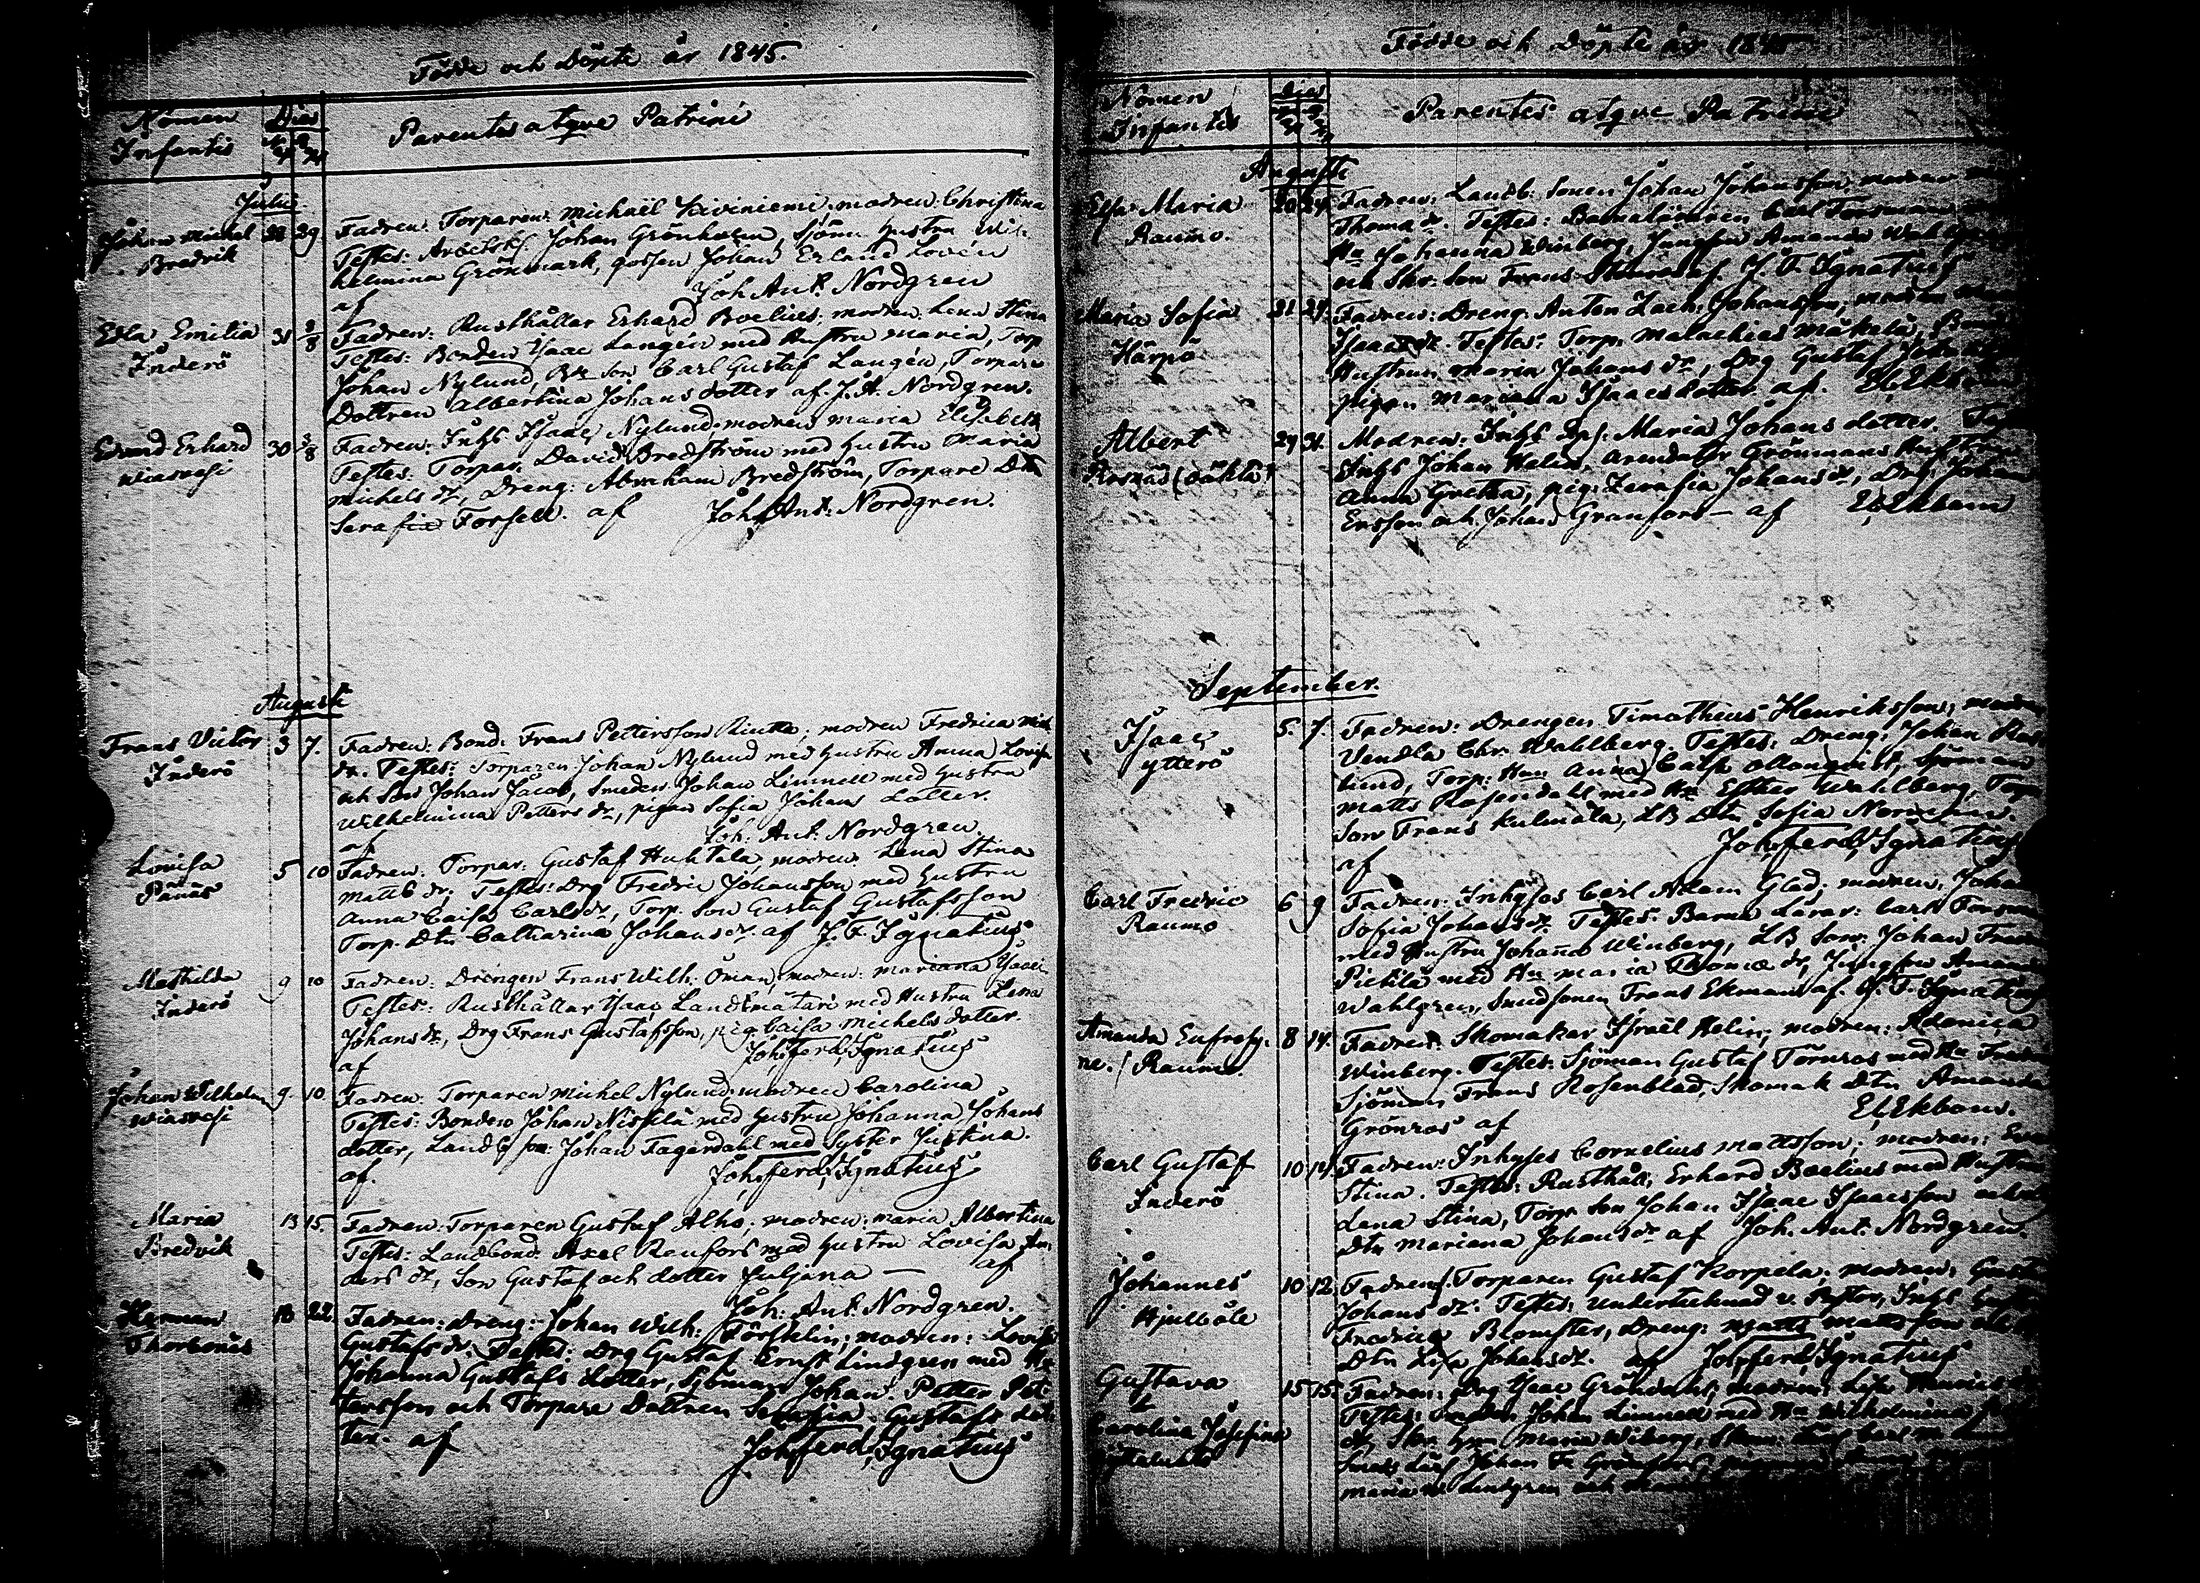 Födde och Döpte år 1845.
Nomen Dies
Infantis Parentes atqve Patrini
Julii
Johan Mickel 28 29 Fadren: Torparen Michaël Kiviniemi, modren: Christina
Bredvik Testes: Arbetsk. Johan Grönholm, Sjöm: hustru Wil-
helmina Grönmark, gossen Johan Erland Lovén
af Joh Ant. Nordgren
Edla Emilia 31 3/8 Fadren: Rusthållar Erhard Boelius, modren: Lena Stina
Inderö Testes: Bonden Isaac Langén med Hustru Maria, Torp
Johan Nylund, Bde son Carl Gustaf Langén, Torpare
Dottren Albertina Johans dotter af J. A. Nordgren.
Edvard Erhard 30 3/8 Fadren: Inhs Isaac Nylund, modren Maria Elisabeth
Wiasvesi Testes: Torpar. David Bredström med hustru Maria
Michels dr, Dreng: Abraham Bredström, Torpare Dtr
Serafia Forsell. af Joh Ant: Nordgren.
Augusti
Frans Victor 3 7. Fadren: Bond. Frans Pettersson, modren Fredrica
Inderö dr. Testes: Torparen Johan Nylund med hustru Anna Lovisa
och Son Johan Jacob, Smeden Johan Limnell med hustru
Wilhelmina Petters dr, pigan Sofia Johans dotter.
af Joh: Ant: Nordgren.
Lovisa 5 10 Fadren: Torpar: Gustaf Huhtala, modren Lena Stina
Pånäs Matts dr; Testes: Drg Fredric Johansson med hustru
Anna Caisa Carls dr, Torp. Son Gustaf Gustafsson
Torp. Dtr. Catharina Johans dr. af J. F. Ignatius
Mathilda 9 10 Fadren: Drengen Frans Wilh. Öman, modren: Mariana
Inderö Testes: Rusthållar Isaac Landtmätari med Hustru Lena
Johans dr, Drg Frans Gustafsson, pig. Caisa Michels dotter.
af Joh ferd Ignatius
Johan Wilhelm 9. 10. Fadren: Torparen Michel Nylund, modren Carolina
Wiasvesi Testes: Bonden Johan Niskla med hustru Johanna Johans
dotter, Landb son: Johan Fagerdahl med Syster Justina.
af. Joh ferd Ignatius
Maria 13 15. Fadren: Torparen Gustaf Alho, modren: Maria Albertina
Bredvik Testes: Landbond: Axel Renfors med hustru Lovisa An-
ders dr, Son Gustaf och dotter Juljana — af
Joh: Ant: Nordgren.
Herman 18 22. Fadren: Dreng: Johan Wilh: modren: Lovisa
Thorbonäs Gustafs dr. Testes: Drg Gustaf Ernst Lindgren med Hu
Johanna Gustafs dotter, Sjöman Johan Petter Pet-
tersson och Torpare Dottren Serafia Gustafs dot-
ter. af Joh ferd Ignatius
Födde och Döpte år 1845
Nomen Dies
Infantis Parentes atqve Patrini
Augusti
Elsa Maria 20 24. Fadren: Landb: Sonen Johan Johansson, modren
Raumo. Thomæ dr. Testes: Barnaläraren Carl Forsman
Hu Johanna Winberg, Jungfru Amanda Wahlgren
och Skr: son Frans af J. F. Ignatius
Maria Sofia 21 24. Fadren: Dreng. Anton Zach: Johansson, modren
Härpö Isaacs dr. Testes: Torp. Malachias Mäkelä, Bond
Hustrun Maria Johans dr, Drg Gustaf
pigan Mariana Isaacs dotter af. El. Ekbom
Albert 29 31. Modren: Inhs Maria Johans dotter.
Rosnäs (oäkta) Inhs Johan Helin, Arendator Grönmans Hustru
Anna Gretha, pig: Serafia Johans dr, Drg: Johan
Ersson och Johan Granfors — af El. Ekbom
September.
Isaac 5. 7. Fadren: Drengen Timotheus Henriksson, modren
ytterö Vendla Chr. Wahlberg. Testes: Dreng: Johan
lund, Torp: Hu: Anna Caisa, Sjöman
Matts Rosendahl med Hu Esther Wahlberg, Torp.
Son Frans Kulmala, LB Dtr Sofia
af Joh ferd Ignatius
Carl Fredric 6 9 Fadren: Inhyses Carl Adam Glad; modren: Johan
Raumo Sofia Johans dr. Testes: Barna Lärar: Carl Forsman
med Hustru Johanna Winberg, LB Son: Johan
med Hu Maria Thomæ dr, Jungfru Amanda
Wahlgren, Smedsonen Frans Ekman af. J. F. Ignatius
Amanda Eufrosy- 8 14. Fadren: Skomakar Israël Helin, modren: Adonica
ne. / Raumo. Winberg. Testes: Sjöman Gustaf Törnros med Hu
Sjöman Frans Rosenblad, Skomak Dtr Amanda
Grönros af El. Ekbom.
Carl Gustaf 10 14. Fadren: Inhyses Cornelius Mattsson; modren: Eva
Inderö Stina. Testes: Rusthåll: Erhard Boelius med Hustru
Lena Stina, Torp Son Johan Isaac Isaacsson och
Dtr Mariana Johans dr af Joh. Ant. Nordgren.
Johannes 10 12. Fadren: Torparen Gustaf Korpela, modren:
Hjulböle Johans dr. Testes: Undertecknad v. Pastor, Inhs
Fredrica Blomster, Dreng: Matts Mattsson
Dtr Lisa Johans dr. af Joh ferd Ignatius
Gustava 15 15. Fadren: Drg Isaac Gröndahl, modren: Lisa Maria
Carolina Josefina Testes: Smeden Johan Limnell med Hu Wilhelmina
dr, Maria Wiberg,
Johan Fr Grönfors
Maria Lindgren och